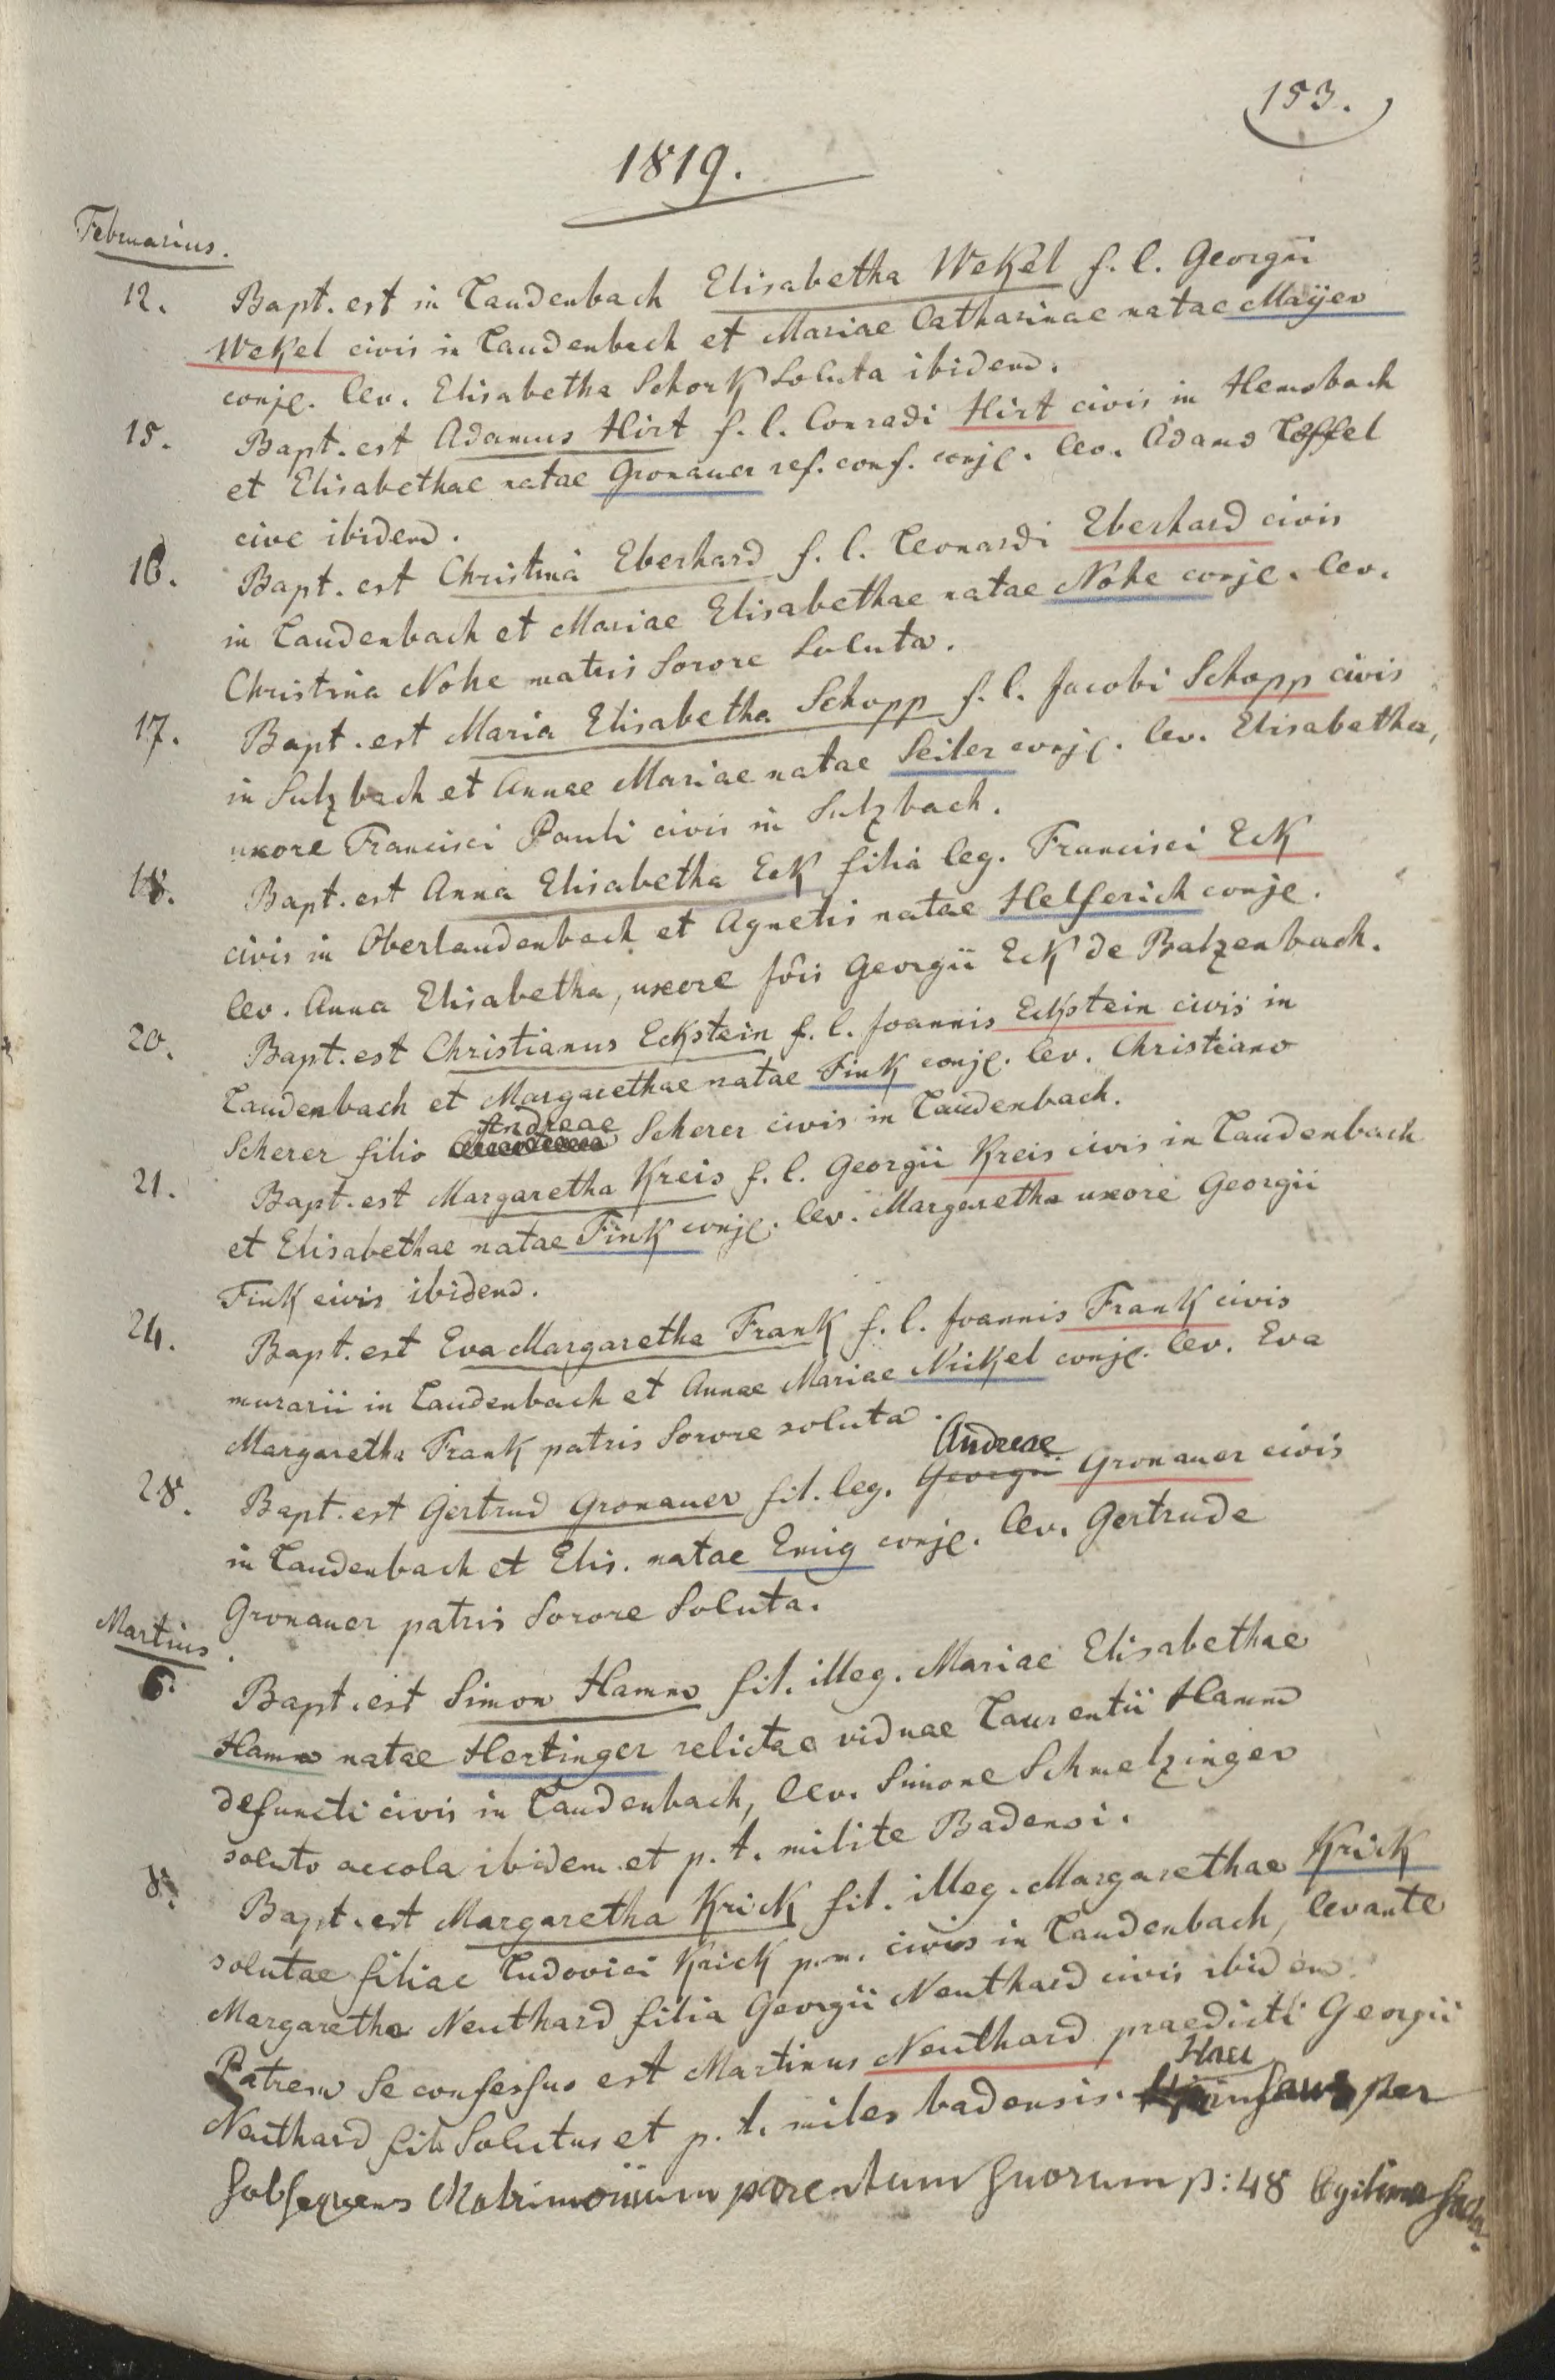 153.
1819.
Februarius.
12. Bapt. est in Laudenbach Elisabetha Wekel f. l. Georgii
Wekel civis in Laudenbach et Mariae Catharinae natae Mayer
conjc. lev. Elisabetha Schork soluta ibidem.
15. Bapt. est Adamus Hirt f. l. Conradi Hirt civis in Hemsbach
et Elisabethae natae Gronauer ref. conf. conjc. lev. Adamo Löffel
cive ibidem.
16. Bapt. est Christina Eberhard f. l. Leonardi Eberhard civis
in Laudenbach et Mariae Elisabethae natae Nohe conjc. lev.
Christina Nohe matris sorore soluta.
17. Bapt. est Maria Elisabetha Schopp f. l. Jacobi Schopp civis
in Sulzbach et Annae Mariae natae Seiler conjc. lev. Elisabetha,
uxore Francisci Pauli civis in Sulzbach.
18. Bapt. est Anna Elisabetha Eck filia leg. Francisci Eck
civis in Oberlaudenbach et Agnetis natae Helferich conjc.
lev. Anna Elisabetha, uxore Jois Georgii Eck de Balzenbach.
20. Bapt. est Christianus Eckstein f. l. Joannis Eckstein civis in
Laudenbach et Margarethae natae Fink conjc. lev. Christiano
Scherer filio Andreae Scherer civis in Laudenbach.
21. Bapt. est Margaretha Kreis f. l. Georgii Kreis civis in Laudenbach
et Elisabethae natae Fink conjc. lev. Margaretha uxore Georgii
Fink civis ibidem.
24. Bapt. est Eva Margaretha Frank f. l. Joannis Frank civis
murarii in Laudenbach et Annae Mariae Nickel conjc. lev. Eva
Margaretha Frank patris sorore soluta.
Andreae
28. Bapt. est Gertrud Gronauer fil. leg. Georgii Gronauer civis
in Laudenbach et Elis. natae Emig conjc. lev. Gertrude
Gronauer patris sorore soluta.
Martius.
6. Bapt. est Simon Hamm fil. illeg. Mariae Elisabethae
Hamm natae Hertinger relictae viduae Laurentii Hamm
defuncti civis in Laudenbach, lev. Simone Schmelzinger
soluto accola ibidem et p. t. milite Badensi.
8. Bapt. est Margaretha Krick fil. illeg. Margarethae Krick
solutae filiae Ludovici Krick p. m. civis in Laudenbach, levante
Margaretha Neuthard filia Georgii Neuthard civis ibidem.
Patrem se confessus est Martinus Neuthard praedicti Georgii
Neuthard fil. solutus et p. t. miles badensis. Haec per
subsequens Matrimonium parentum suorum p: 48 legitima facta.